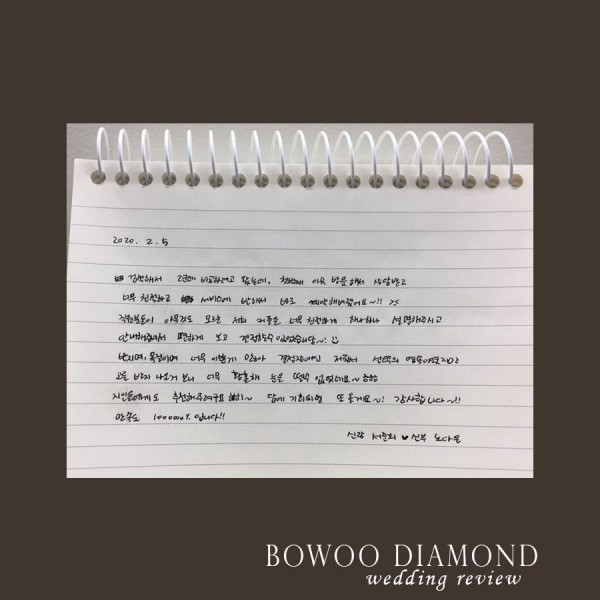 2020. 2. 5
검색해서 2군데 비교하려고 왔는데, 첫번째 이곳 방문해서 상담받고
너무 친절하고 서비스에 반해서 바로 계약해버렸어요~!! ㅋㅋ
직원분들이 아무것도 모르는 저희 커플을 너무 친절하게 하나하나 설명해주시고
안내해주셔서 편하게 보고 결정할수 있었습니다~!
반지며, 목걸이며 너무 이쁜게 많아 결정장애인 저희가 선택의
고른 반지 나온거 보니 너무 황홀해 눈을 뗄수 없었네요~ ㅎㅎㅎ
지인들에게도 추천해주려구요 히히~ 담에 기회되면 또 올게요~! 감사합니다~!!
만족도 100000%입니다!!
신랑 ♥ 신부 노다은
BOWOO DIAMOND
wedding review